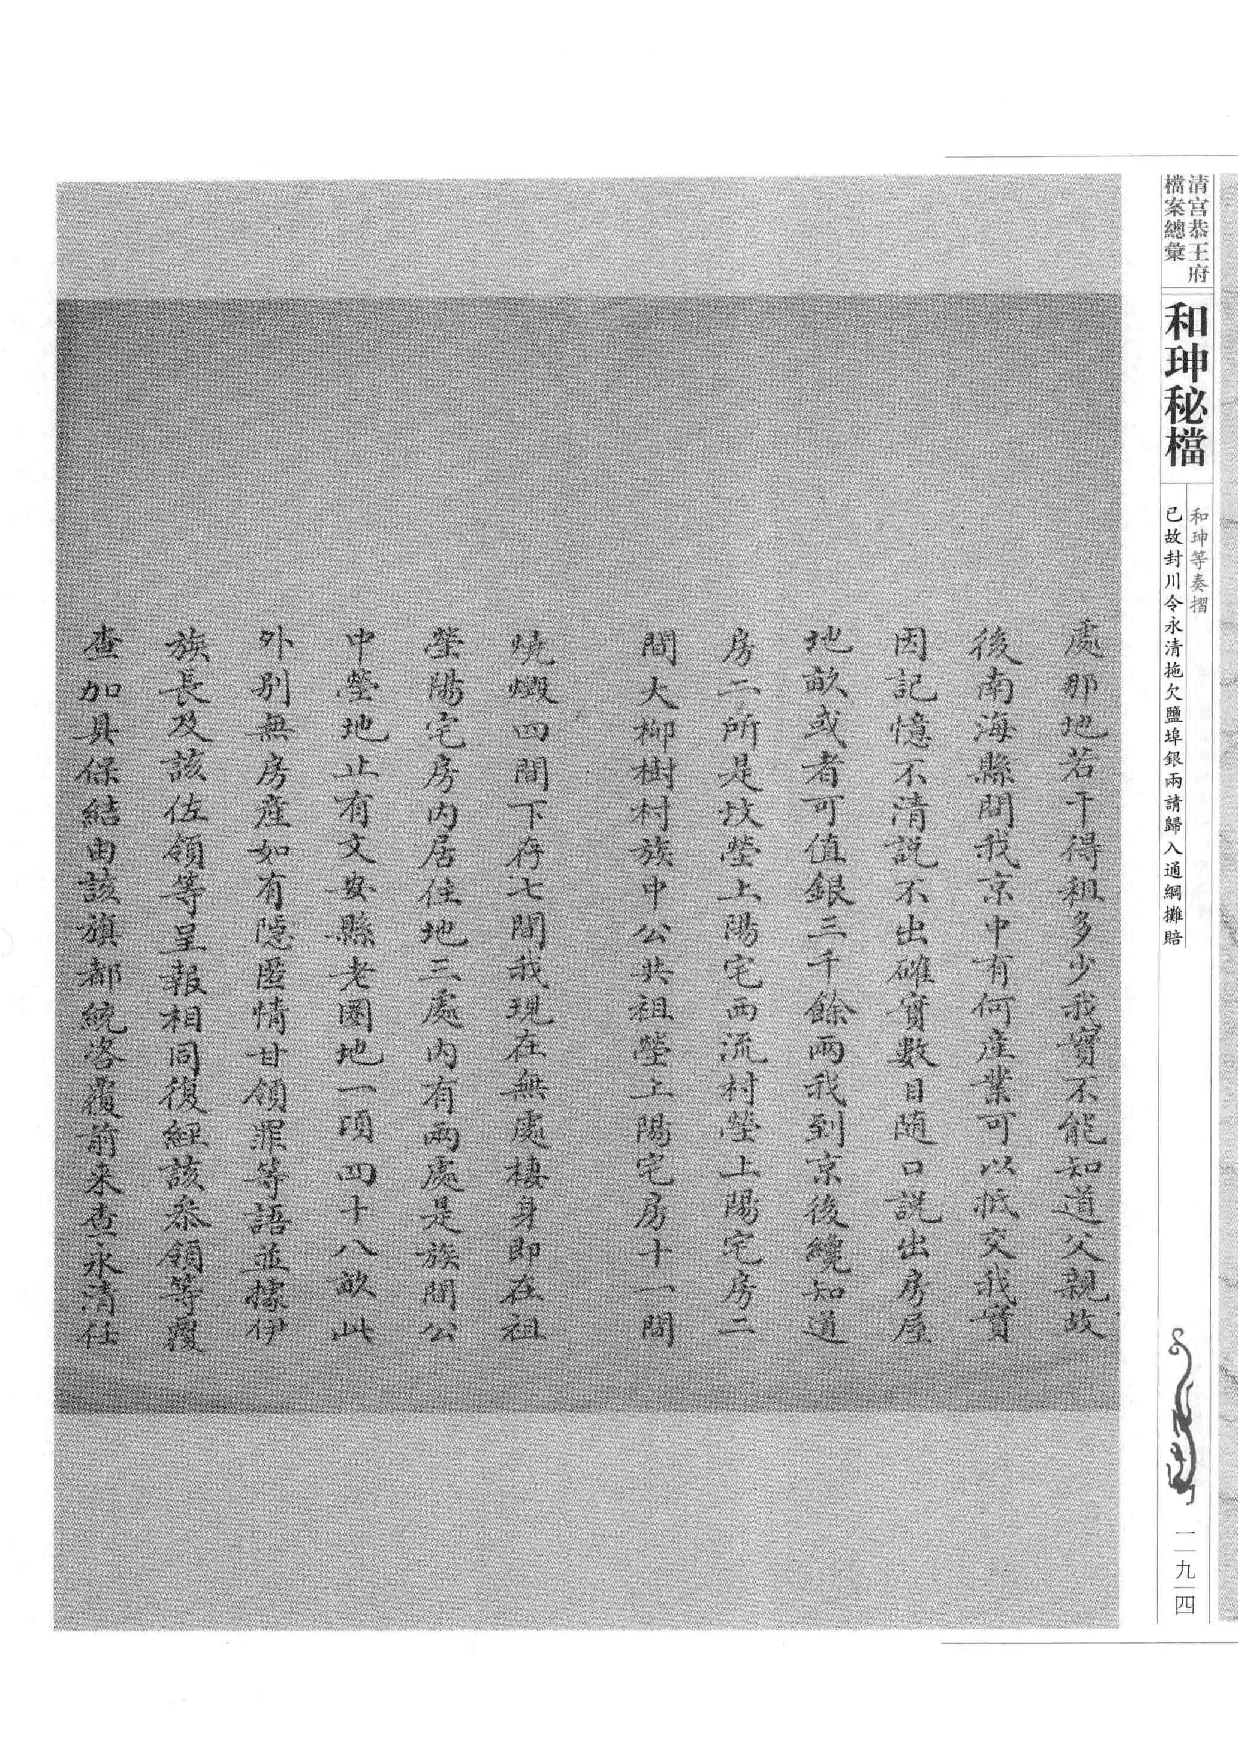 清宮恭王府
檔案總彙
和珅秘檔
和珅等奏摺
已故封川令永清拖欠鹽埠銀兩請歸入通綱攤賠
二九四
處那地若干得租多少我實不能知道父親故
後南海縣問我京中有何產業可以抵交我實
因記憶不清説不出確實數目随口説出房屋
地畝或者可值銀三千餘兩我到京後纔知道
房二所是坟塋上陽宅西流村塋上陽宅房二
間大柳樹村族中公共祖塋上陽宅房十一間
燒燬四間下存七間我現在無處棲身即在祖
塋陽宅房内居住地三處内有兩處是族間公
中塋地止有文安縣老圈地一項四十八畝此
外别無房産如有隱匿情甘領罪等語並據伊
族長及該佐領等呈報相同復經該叅領等覆
查加具保結由該旗都統咨覆前来查永清任